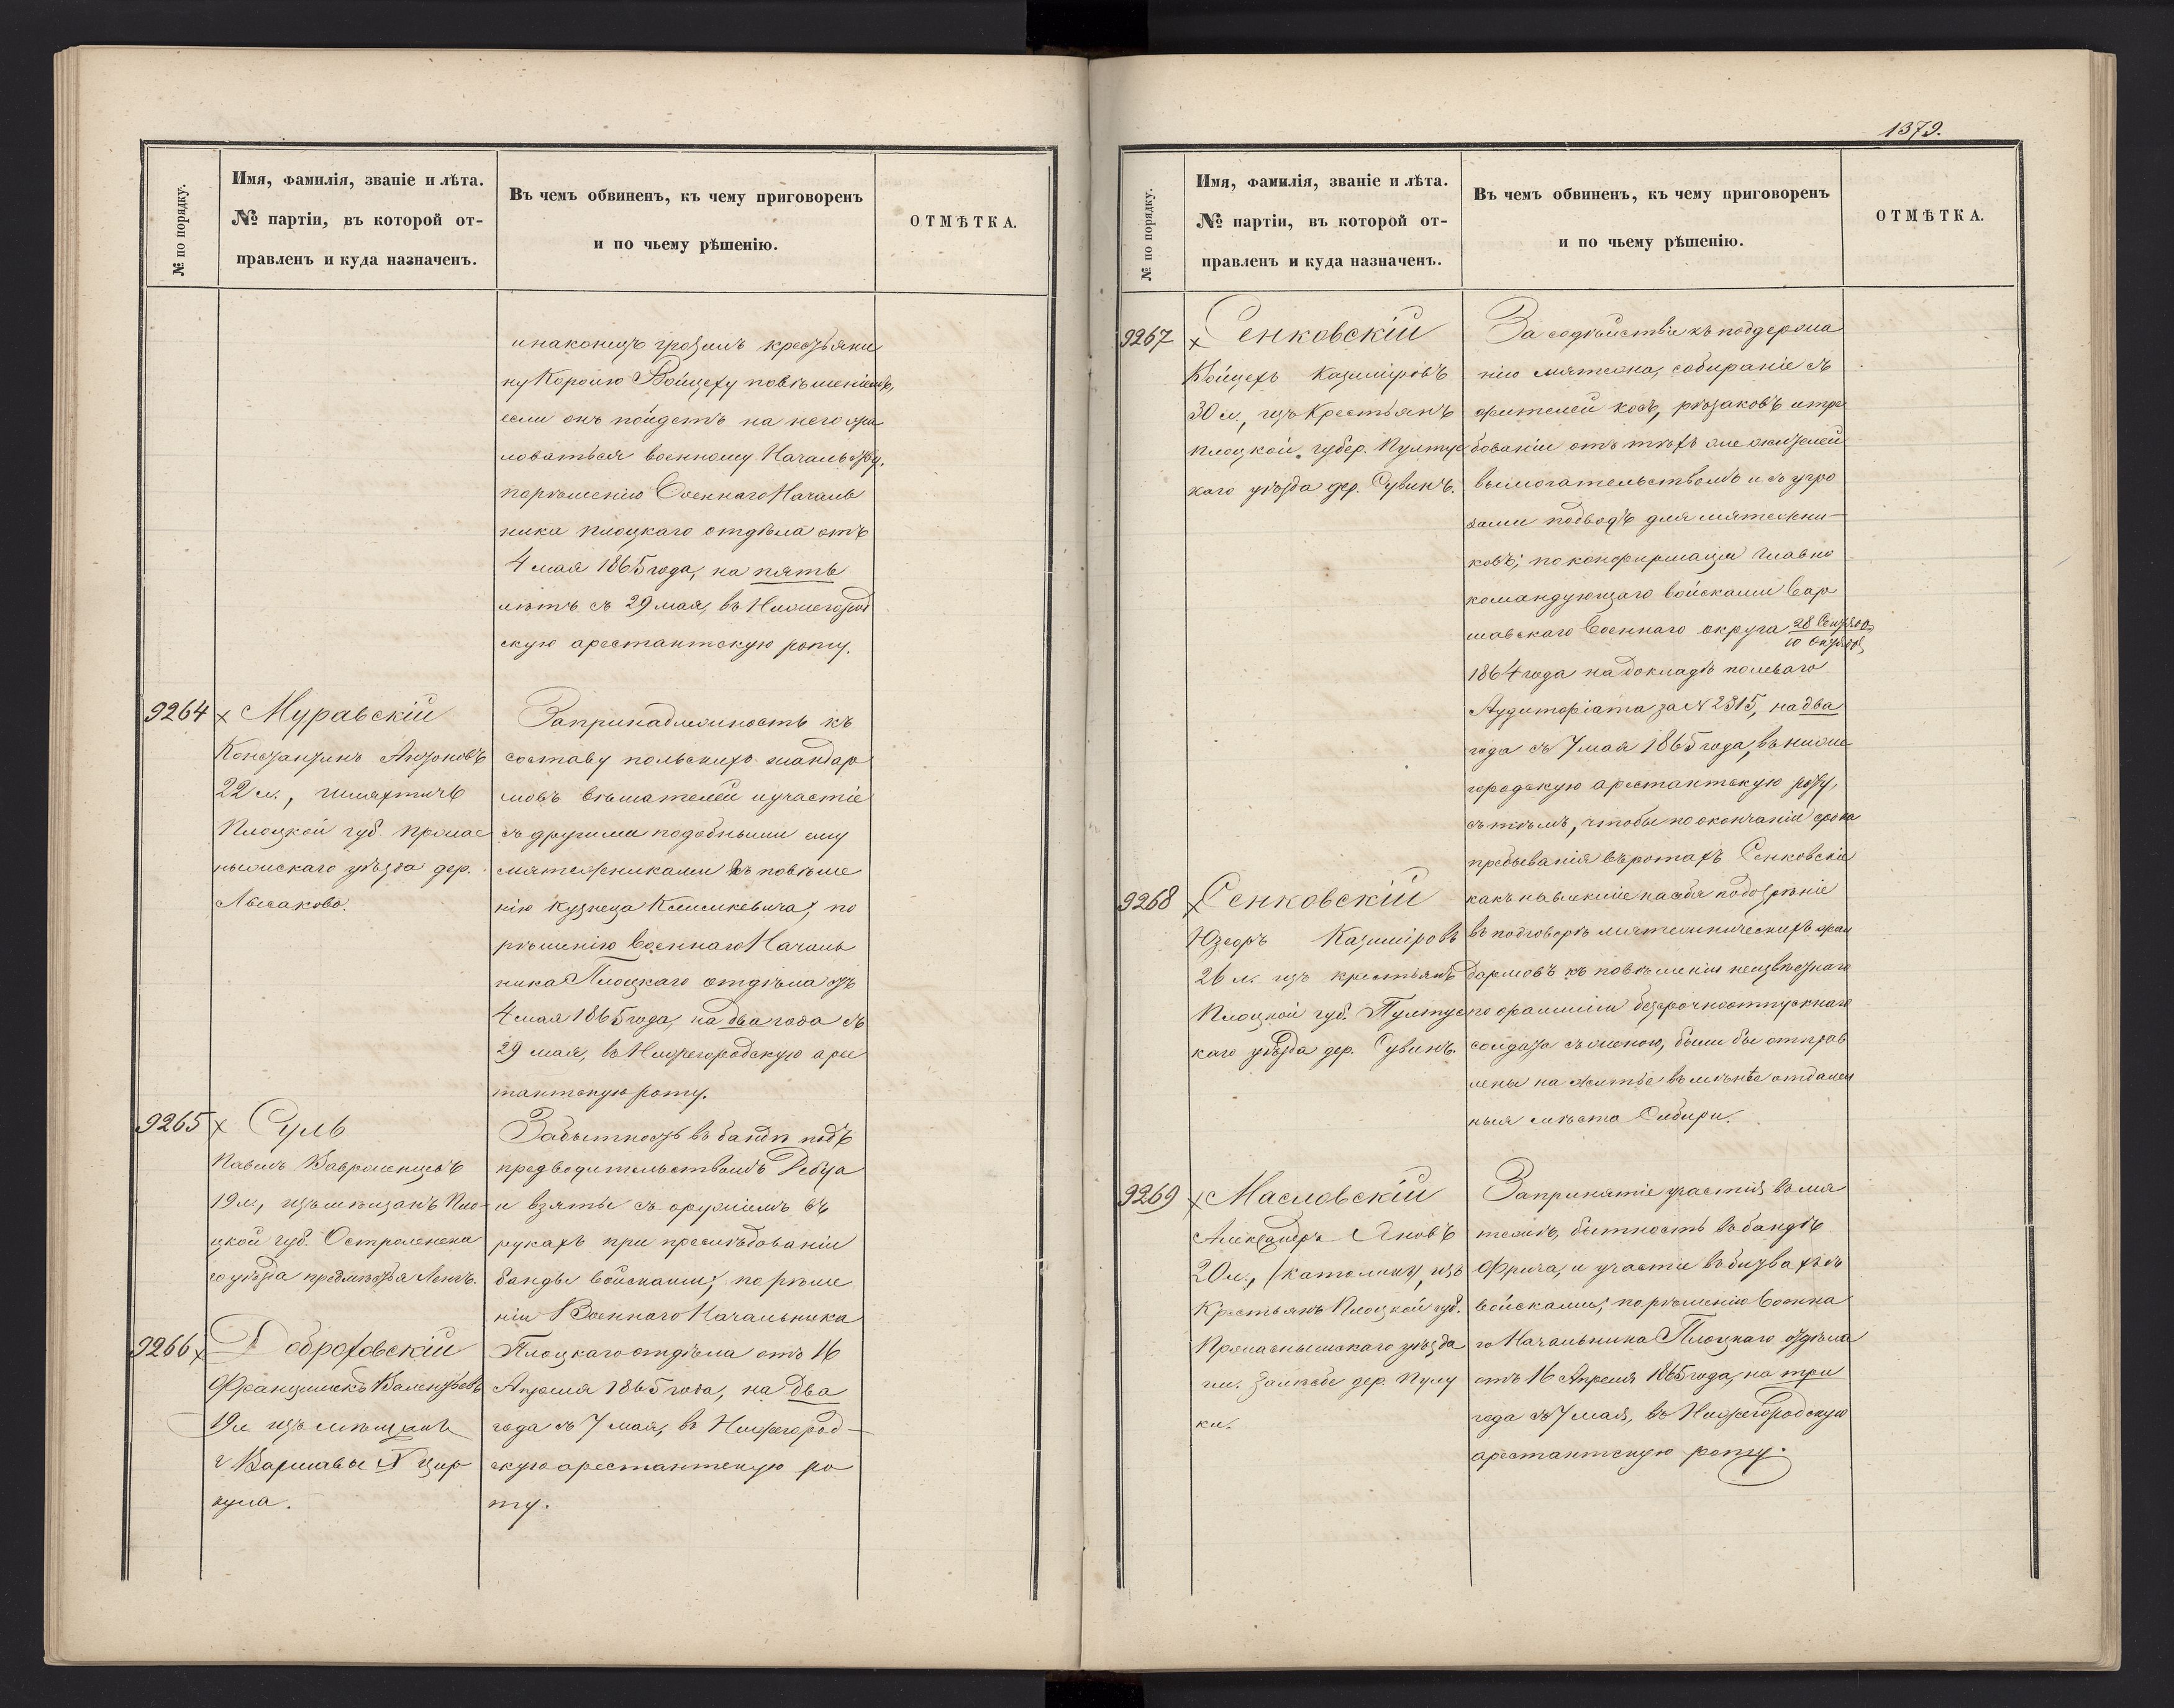 № по порядку.
Имя, фамилія, званіе и лѣта.
№ партіи, въ которой от-
правленъ и куда назначенъ.
Въ чемъ обвиненъ, къ чему приговоренъ
и по чьему рѣшенію.
ОТМѢТКА.
инаконецъ грозилъ крестьяни
ну Королю Войцеху повѣшеніемъ,
если онъ пойдетъ на него жа
ловаться военному Начальству,
порѣшенію Военнаго Началь
ника плоцкаго отдѣла отъ
4 мая 1865 года, на пять
лѣтъ съ 29 мая, въ Нижегород
скую арестантскую роту.
9264 х Муравскій
Константинъ Антоновъ
22 л., шляхтичъ
Плоцкой губ. Прас
нышскаго уѣзда дер.
Лысаково.
Запринадлежность къ
составу польскихъ жандар
мовъ вѣшателей иучастіе
съ другими подобными ему
мятежниками въ повѣше
ніи кузнеца Климкевича, по
рѣшенію Военнаго Началь
ника Плоцкаго отдѣла отъ
4 мая 1865 года, на два года съ
29 мая, въ Нижегородскую арес
тантскую роту.
9265 х Суль
Павелъ Вавренцовъ
19 л., изъ мѣщанъ Пло-
цкой губ. Остроленска
го уѣзда предмѣстья
Забытность въ бандѣ подъ
предводительствомъ
и взятье съ оружіемъ въ
рукахъ при преслѣдованіи
банды войсками; по рѣше
нію Военнаго Начальника
Плоцкаго отдѣла отъ 16
Апреля 1865 года, на два
года съ 7 мая, въ Нижегород-
скую арестантскую ро
ту.
9266 х Доброховскій
Францишекъ Валентьевъ
19 л изъ мѣщанъ
г Варшавы цир
кула.
1379.
№ по порядку.
Имя, фамилія, званіе и лѣта.
№ партіи, въ которой от-
правленъ и куда назначенъ.
Въ чемъ обвиненъ, къ чему приговоренъ
и по чьему рѣшенію.
ОТМѢТКА.
9267 х Сенковскій
Войцехъ Казиміровъ
30 л., изъ Крестьянъ
Плоцкой губер. Пултус
каго уѣзда дер. Сувинъ.
За содѣйствіе къ поддержа
нію мятежа, собираніе съ
жителей косъ, рѣзаковъ итре
бованіи отъ тѣхъ же жителей
вымогательствомъ и съ угро
зами подводъ для мятежни-
ковъ; по конфирмаціи Главно
командующаго войсками Вар
шавскаго Военнаго округа 28 Сентября
10 Октября
1864 года надокладѣ полеваго
Аудиторіата за № 2315, на два
года съ 7 мая 1865 года, въ ниже
городскую арестантскую роту,
съ тѣмъ, чтобы по окончаніи срока
пребыванія въ ротахъ Сенковскіе
какъ навлекшіе насебя подозрѣніе
въ подговорѣ мятежническихъ жан
дармовъ къ повѣшенію неизвѣстнаго
по фамиліи безсрочноотпускнаго
солдата съ женою, были бы отправ
лены на житье въ менѣе отдален
ныя мѣста Сибири.
9268 х Сенковскій
Юзефъ Казиміровъ
26 л. изъ крестьянъ
Плоцкой губ. Пултус
каго уѣзда дер. Сувинъ.
9269 х Масловскій
Александръ Яновъ
20 л., (католикъ), изъ
Крестьянъ Плоцкой губ.
Праснышскаго уѣзда
гм. дер. Пулу
ки.
Запринятіе участія въ мя
тежѣ, бытность въ бандѣ
Фрича, и участіе въ битвахъ съ
войсками; порѣшенію Военна
го Начальника Плоцкаго отдѣла
отъ 16 Апреля 1865 года, на три
года съ 7 мая, въ Нижегородскую
арестантскую роту.